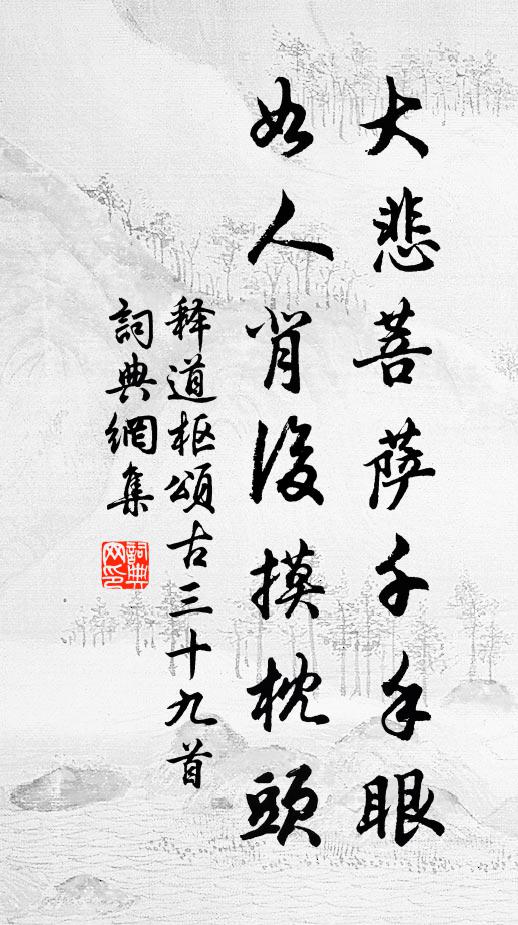 大悲菩萨千手眼
如人背後摸枕頭
释道枢頌古三十九首
詞典網集
詞典网印